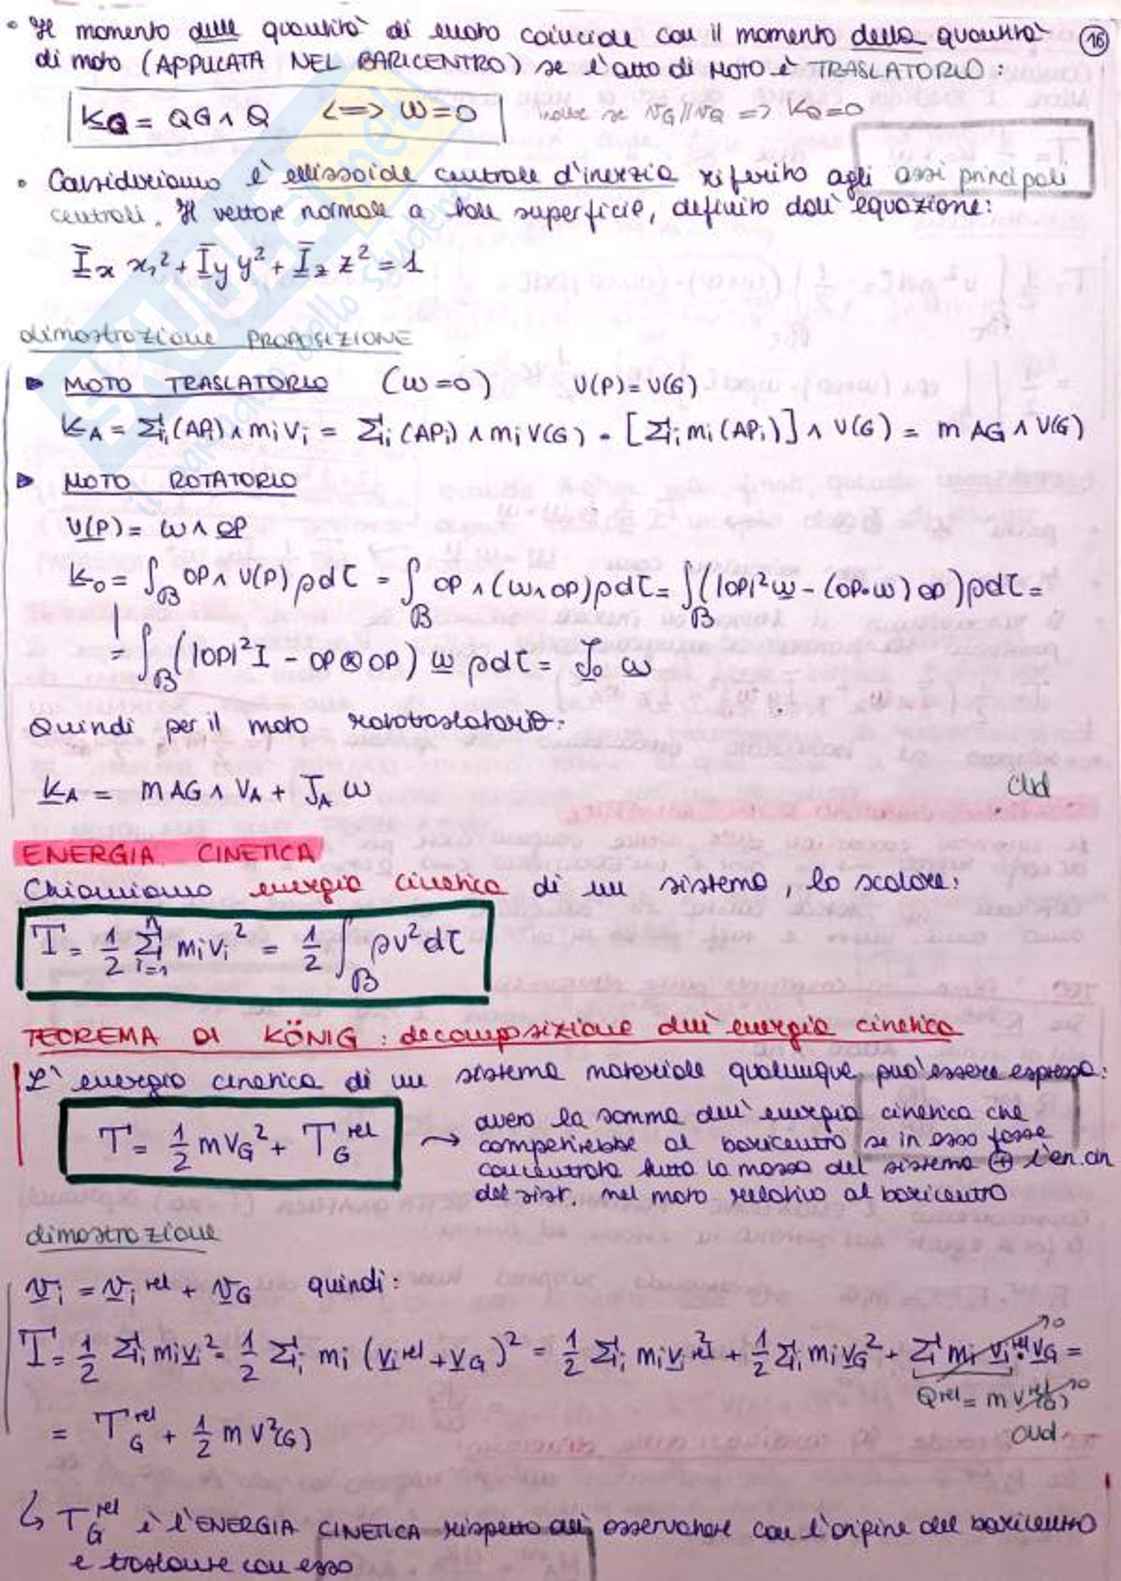 • Il momento delle quantità di moto coincide con il momento della quantità 16
di moto (APPLICATA NEL BARICENTRO) se l'atto di MOTO è TRASLATORIO:
K_Q = QG ∧ Q <=> ω=0 inoltre se v_G // v_Q => K_Q=0
• Consideriamo l'ellissoide centrale d'inerzia riferito agli assi principali
centrali. Il vettore normale a tale superficie, definito dall'equazione:
Ī_x x² + Ī_y y² + Ī_z z² = 1
dimostrazione PROPOSIZIONE
▶ MOTO TRASLATORIO (ω=0) v(P) = v(G)
K_A = Σ_i (AP_i) ∧ m_i v_i = Σ_i (AP_i) ∧ m_i v(G) = [Σ_i m_i (AP_i)] ∧ v(G) = m AG ∧ v(G)
▶ MOTO ROTATORIO
v(P) = ω ∧ OP
K_O = ∫_B OP ∧ v(P) ρdτ = ∫_B OP ∧ (ω ∧ OP) ρdτ = ∫_B (|OP|² ω - (OP·ω) OP) ρdτ =
= ∫_B (|OP|² I - OP ⊗ OP) ω ρdτ = J_O ω
Quindi per il moto rototraslatorio:
K_A = m AG ∧ v_A + J_A ω cvd
ENERGIA CINETICA
Chiamiamo energia cinetica di un sistema, lo scalare:
T = 1/2 Σ_{i=1}^n m_i v_i² = 1/2 ∫_B ρv²dτ
TEOREMA DI KÖNIG: decomposizione dell'energia cinetica
L'energia cinetica di un sistema materiale qualunque può essere espressa:
T = 1/2 m v_G² + T_G^rel → ovvero la somma dell'energia cinetica che
competerebbe al baricentro se in esso fosse
concentrata tutta la massa del sistema ⊕ l'en. cin
del sist. nel moto relativo al baricentro
dimostrazione
v_i = v_i^rel + v_G quindi:
T = 1/2 Σ_i m_i v_i² = 1/2 Σ_i m_i (v_i^rel + v_G)² = 1/2 Σ_i m_i v_i^rel² + 1/2 Σ_i m_i v_G² + Σ_i m_i v_i^rel · v_G → 0 =
Q^rel = m v^rel(G) → 0
= T_G^rel + 1/2 m v²(G) cvd.
↳ T_G^rel è l'ENERGIA CINETICA rispetto all'osservatore con l'origine nel baricentro
e traslante con esso